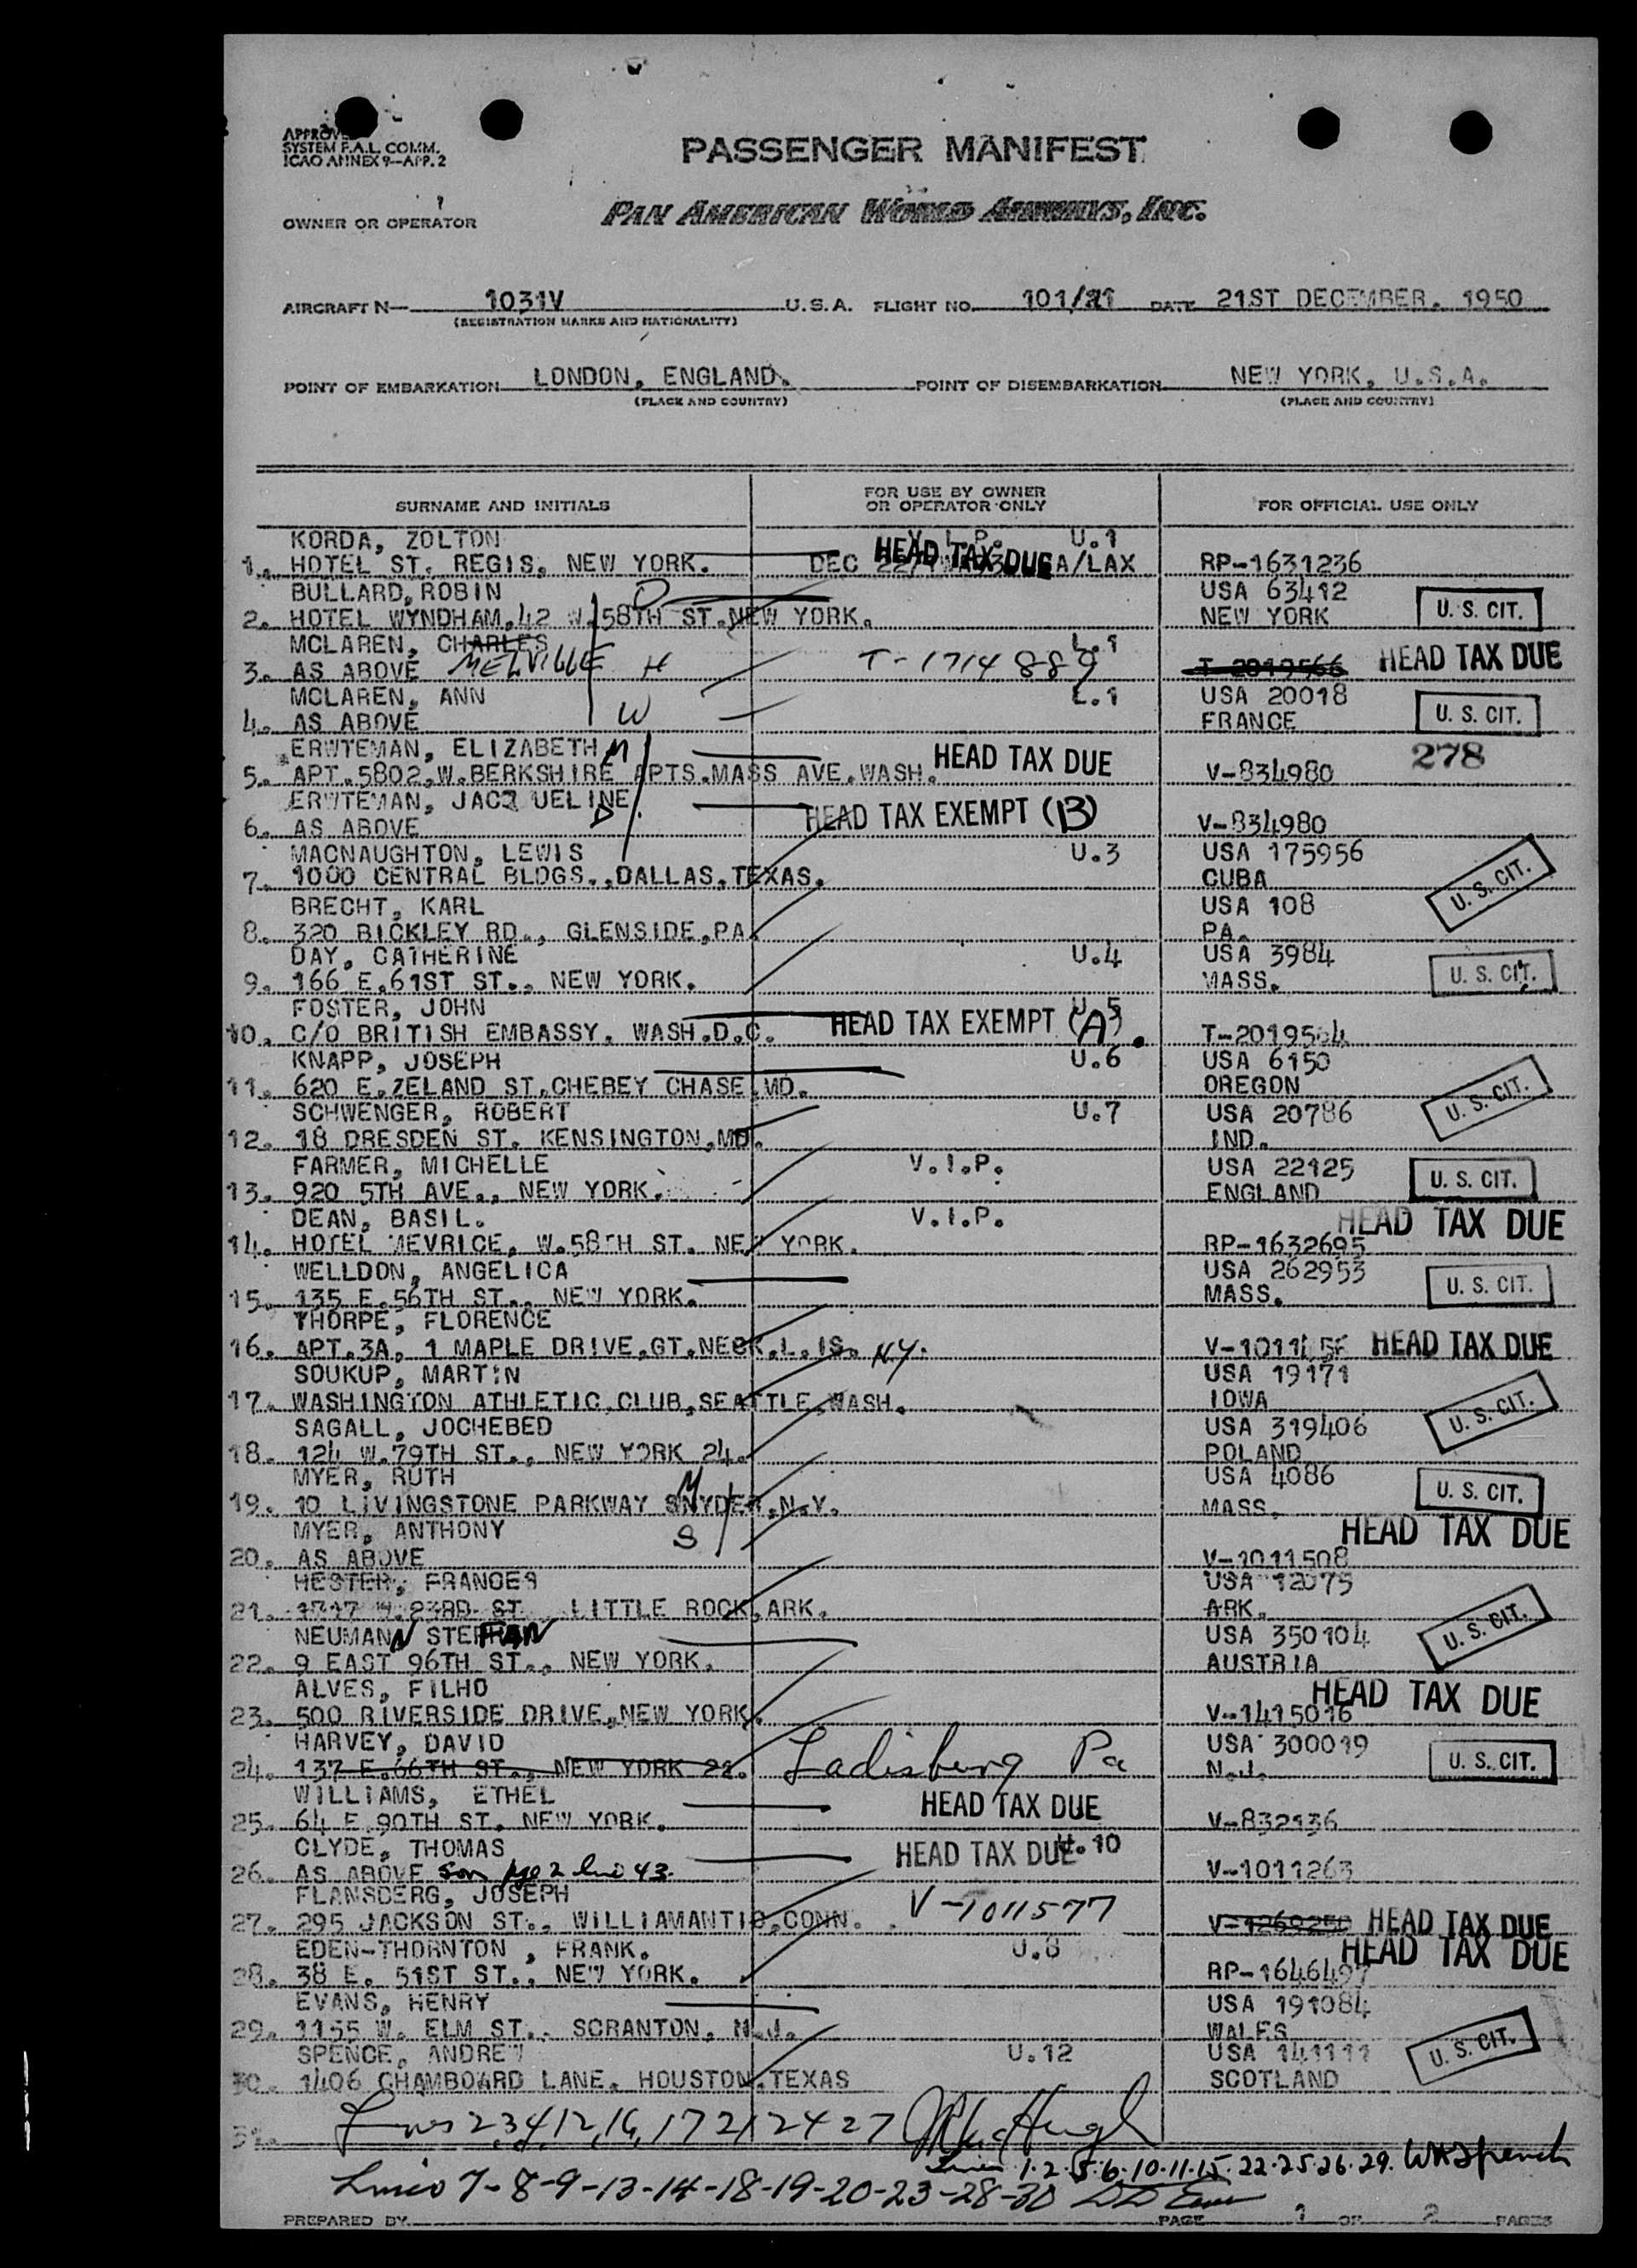 APPROVED
SYSTEM F.A.L. COMM.
ICAO ANNEX 9—APP. 2
PASSENGER MANIFEST
OWNER OR OPERATOR
PAN AMERICAN WORLD AIRWAYS, INC.
AIRCRAFT N— 1031V U.S.A. FLIGHT NO. 101/21 DATE 21ST DECEMBER. 1950
(REGISTRATION MARKS AND NATIONALITY)
POINT OF EMBARKATION LONDON, ENGLAND. POINT OF DISEMBARKATION NEW YORK, U.S.A.
(PLACE AND COUNTRY) (PLACE AND COUNTRY)
SURNAME AND INITIALS FOR USE BY OWNER OR OPERATOR ONLY FOR OFFICIAL USE ONLY
KORDA, ZOLTON V.I.P. U.1
1. HOTEL ST. REGIS, NEW YORK. DEC HEAD TAX DUE A/LAX RP-1631236
BULLARD, ROBIN USA 63412
2. HOTEL WYNDHAM, 42 W.58TH ST.NEW YORK. NEW YORK U. S. CIT.
MCLAREN, CHARLES L.1
3. AS ABOVE MELVILLE H T-1714889 T-2019566 HEAD TAX DUE
MCLAREN, ANN L.1 USA 20018
4. AS ABOVE W FRANCE U. S. CIT.
ERWTEMAN, ELIZABETH M HEAD TAX DUE 278
5. APT.5802,W.BERKSHIRE APTS.MASS AVE.WASH. V-834980
ERWTEMAN, JACQUELINE D HEAD TAX EXEMPT (B)
6. AS ABOVE V-834980
MACNAUGHTON, LEWIS U.3 USA 175956
7. 1000 CENTRAL BLDGS.,DALLAS,TEXAS. CUBA U. S. CIT.
BRECHT, KARL USA 108
8. 320 BICKLEY RD., GLENSIDE,PA. PA.
DAY, CATHERINE U.4 USA 3984
9. 166 E.61ST ST., NEW YORK. MASS. U. S. CIT.
FOSTER, JOHN U.5
10. C/O BRITISH EMBASSY, WASH.D.C. HEAD TAX EXEMPT (A). T-2019504
KNAPP, JOSEPH U.6 USA 6150
11. 620 E.ZELAND ST.CHEBEY CHASE,MD. OREGON U. S. CIT.
SCHWENGER, ROBERT U.7 USA 20786
12. 18 DRESDEN ST. KENSINGTON,MD. IND.
FARMER, MICHELLE V.I.P. USA 22125
13. 920 5TH AVE., NEW YORK. ENGLAND U. S. CIT.
DEAN, BASIL. V.I.P. HEAD TAX DUE
14. HOTEL MEVRICE, W.58TH ST. NEW YORK. RP-1632695
WELLDON, ANGELICA USA 262953
15. 135 E.56TH ST., NEW YORK. MASS. U. S. CIT.
THORPE, FLORENCE
16. APT.3A, 1 MAPLE DRIVE,GT.NECK,L.IS. N.Y. HEAD TAX DUE
SOUKUP, MARTIN USA 19171
17. WASHINGTON ATHLETIC CLUB,SEATTLE,WASH. IOWA U. S. CIT.
SAGALL, JOCHEBED USA 319406
18. 124 W.79TH ST., NEW YORK 24. POLAND
MYER, RUTH M USA 4086
19. 10 LIVINGSTONE PARKWAY SNYDER,N.Y. MASS. U. S. CIT.
MYER, ANTHONY S HEAD TAX DUE
20. AS ABOVE V-1011508
HESTER, FRANCES USA 12075
21. 1717 W.23RD ST. LITTLE ROCK,ARK. ARK. U. S. CIT.
NEUMANN STEPHEN USA 350104
22. 9 EAST 96TH ST., NEW YORK. AUSTRIA
ALVES, FILHO HEAD TAX DUE
23. 500 RIVERSIDE DRIVE,NEW YORK. V-1415016
HARVEY, DAVID USA 300019
24. 137 E.66TH ST., NEW YORK 21. Ladisburg Pa N.J. U. S. CIT.
WILLIAMS, ETHEL HEAD TAX DUE
25. 64 E.90TH ST. NEW YORK. V-832136
CLYDE, THOMAS HEAD TAX DUE U.10
26. AS ABOVE son pge 2 line 43. V-1011263
FLANSBERG, JOSEPH V-1011577
27. 295 JACKSON ST., WILLIAMANTIC,CONN. V-1269250 HEAD TAX DUE
EDEN-THORNTON , FRANK. U.8 HEAD TAX DUE
28. 38 E. 51ST ST., NEW YORK. RP-1646497
EVANS, HENRY USA 191084
29. 1155 W. ELM ST., SCRANTON, N.J. WALES
SPENCE, ANDREW U.12 USA 141111 U. S. CIT.
30. 1406 CHAMBOARD LANE, HOUSTON,TEXAS SCOTLAND
31. Lines 2 3 4 12, 16, 17 21 24 27
Lines 1·2·5·6·10·11·15·22·25·26·29. WH Spench
Lines 7-8-9-13-14-18-19-20-23-28-30
PREPARED BY PAGE 1 OF 2 PAGES